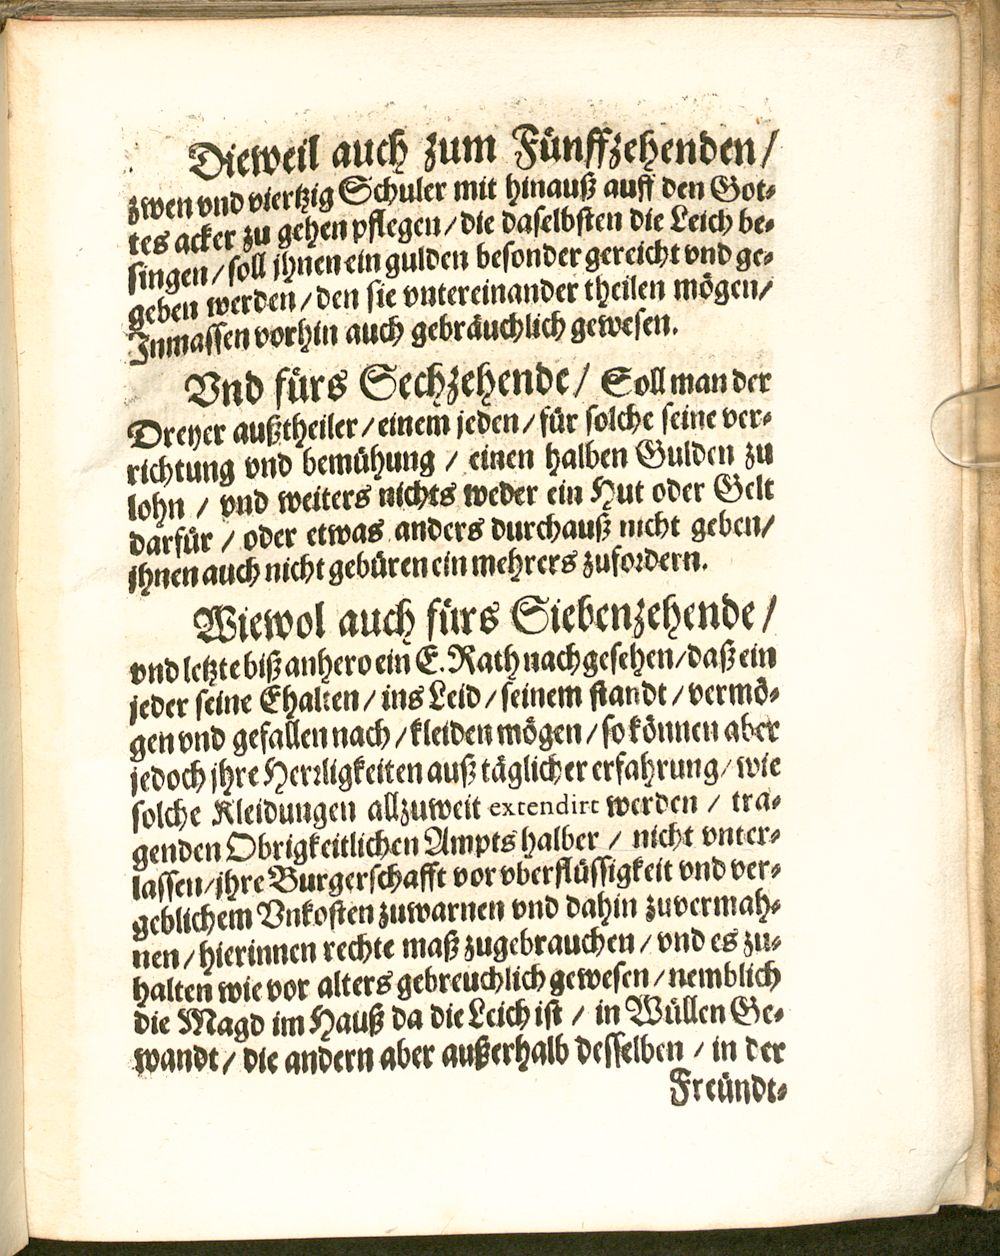 Dieweil auch zum Fünffzehenden/
zwen vnd viertzig Schuler mit hinauß auff den Got-
tes acker zu gehen pflegen/die daselbsten die Leich be-
singen/soll jhnen ein gulden besonder gereicht vnd ge-
geben werden/den sie vntereinander theilen mögen/
Inmassen vorhin auch gebräuchlich gewesen.
Vnd fürs Sechzehende/ Soll man der
Dreyer außtheiler/einem jeden/für solche seine ver-
richtung vnd bemühung / einen halben Gulden zu
lohn / vnd weiters nichts weder ein Hut oder Gelt
darfür / oder etwas anders durchauß nicht geben/
jhnen auch nicht gebüren ein mehrers zufordern.
Wiewol auch fürs Siebenzehende/
vnd letzte biß anhero ein E. Rath nachgesehen/daß ein
jeder seine Ehalten/ins Leid/seinem standt/vermö-
gen vnd gefallen nach/kleiden mögen/so können aber
jedoch jhre Herrligkeiten auß täglicher erfahrung/wie
solche Kleidungen allzuweit extendirt werden / tra-
genden Obrigkeitlichen Ampts halber / nicht vnter-
lassen/jhre Burgerschafft vor vberflüssigkeit vnd ver-
geblichem Vnkosten zuwarnen vnd dahin zuvermah-
nen/hierinnen rechte maß zugebrauchen/vnd es zu-
halten wie vor alters gebreuchlich gewesen/nemblich
die Magd im Hauß da die Leich ist / in Wüllen Ge-
wandt/die andern aber außerhalb desselben/in der
Freündt-